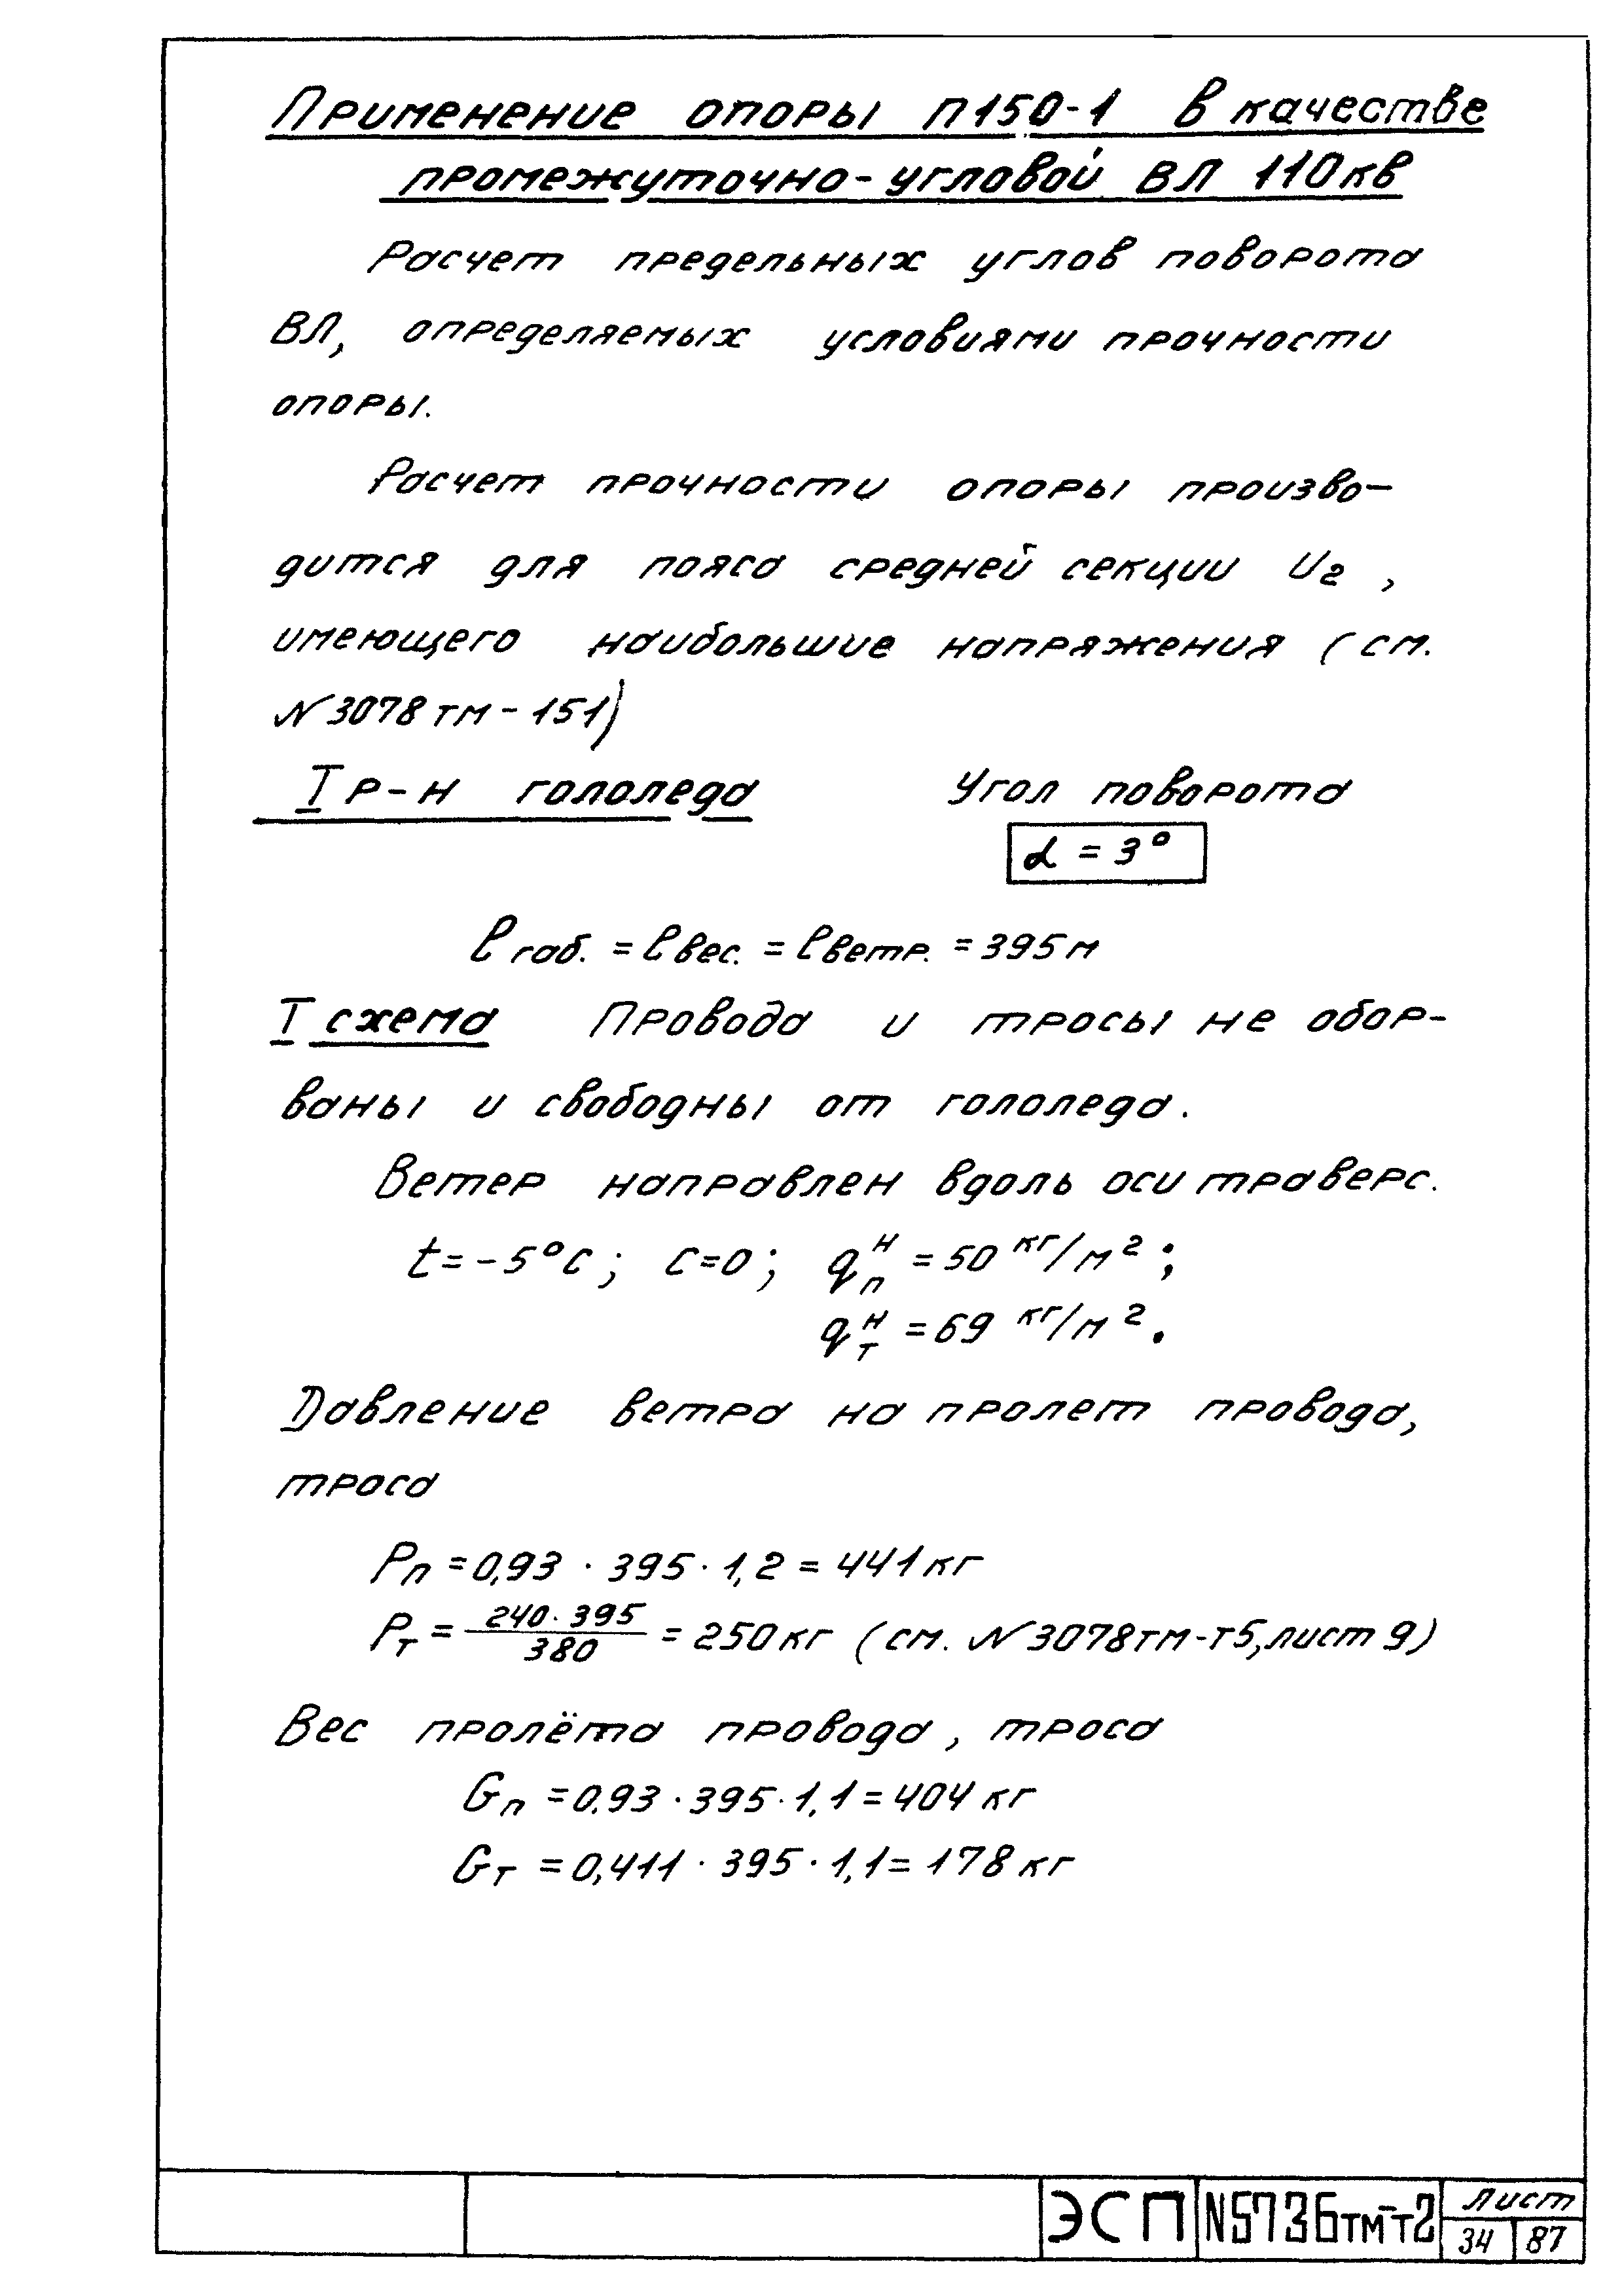 Применение опоры П150-1 в качестве
промежуточно-угловой ВЛ 110кв
Расчет предельных углов поворота
ВЛ, определяемых условиями прочности
опоры.
Расчет прочности опоры произво-
дится для пояса средней секции U₂,
имеющего наибольшие напряжения (см.
N3078тм-151)
I р-н гололеда Угол поворота
α = 3°
ℓ габ. = ℓ вес. = ℓ ветр. = 395м
I схема Провода и тросы не обор-
ваны и свободны от гололеда.
Ветер направлен вдоль оси траверс.
t=-5°C; C=0; qᴴп = 50 кг/м²;
qᴴт = 69 кг/м².
Давление ветра на пролет провода,
троса
Pп = 0,93 · 395 · 1,2 = 441кг
Pт = 240·395/380 = 250кг (см. N3078тм-т5, лист 9)
Вес пролёта провода, троса
Gп = 0.93 · 395 · 1,1 = 404 кг
Gт = 0,411 · 395 · 1,1 = 178 кг
ЭСП N5736тм-т2 Лист
34 87